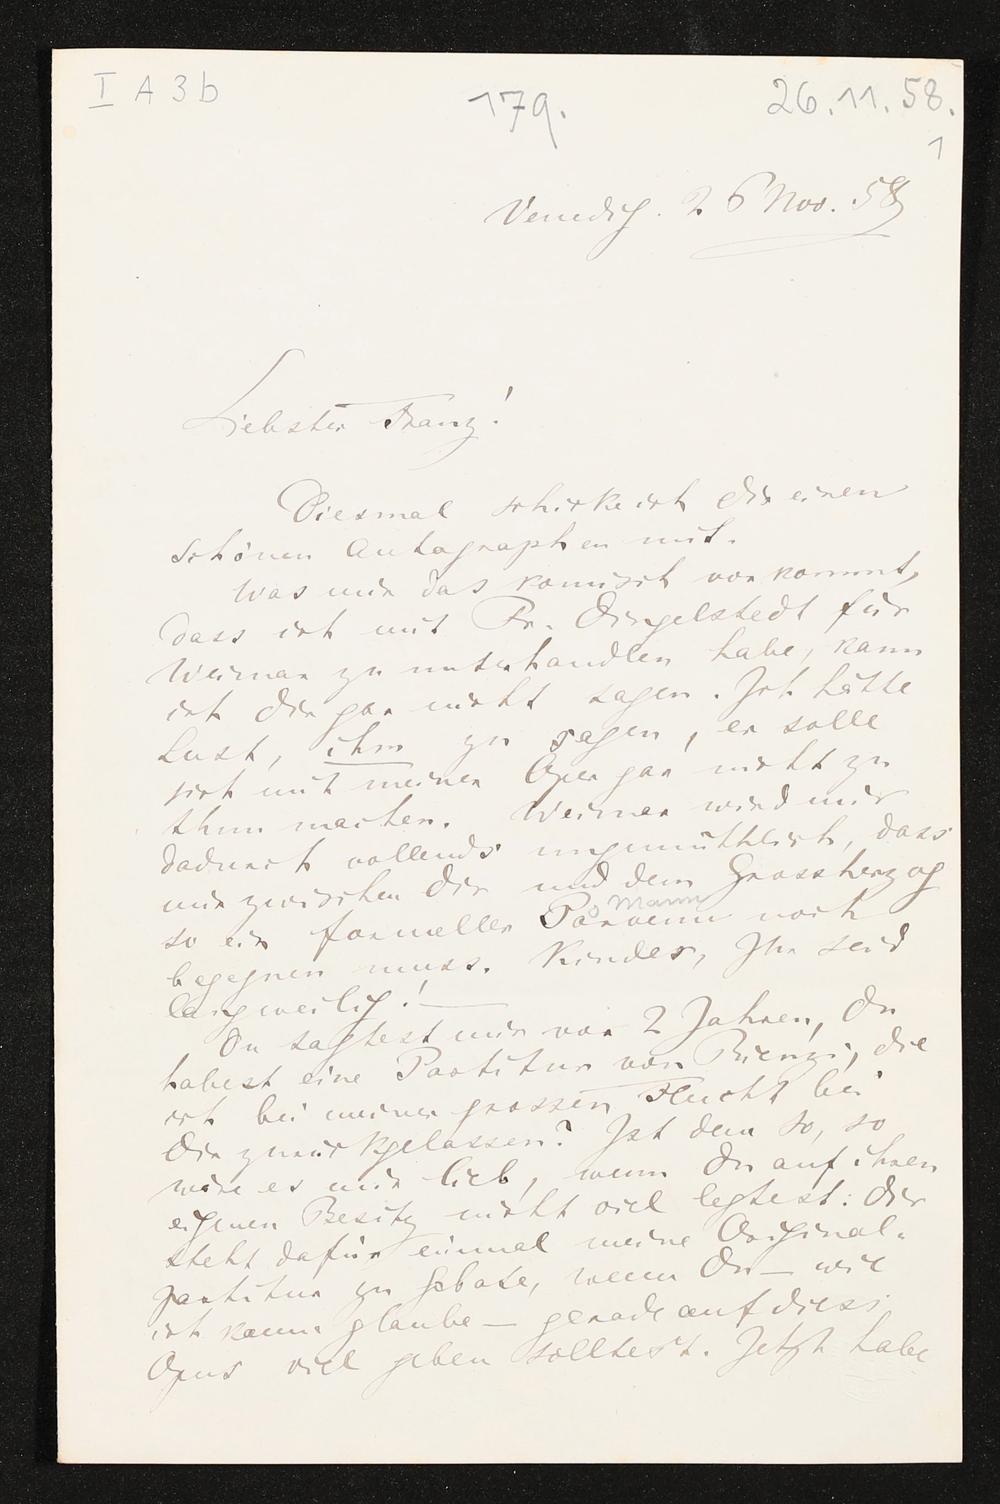 I A 3 b
179.
26.11.58.
1
Venedig. 26 Nov. 58
Liebster Franz!
Diesmal schicke ich dir einen
schönen Autographen mit.
Was mir das komisch vorkommt,
dass ich mit Fr. Dingelstedt für
Weimar zu unterhandlen habe, kann
ich dir gar nicht sagen. Ich hätte
Lust, ihm zu sagen, er solle
sich mit meiner Oper gar nicht zu
thun machen. Weimar wird mir
dadurch vollends ungemüthlich, dass
mir zwischen dir und dem Grossherzog
so ein formeller Parvenu noch
s Mann
begegnen muss. Kinder, Ihr seid
langweilig! —
Du sagtest mir vor 2 Jahren, du
habest eine Partitur von Rienzi, die
ich bei meiner grossen Flucht bei
Dir zurückgelassen? Ist dem so, so
wäre es mir lieb, wenn du auf ihren
eigenen Besitz nicht viel legtest: dir
steht dafür einmal meine Original-
partitur zu Gebote, wenn Du — wie
ich kaum glaube — gerade auf diess
Opus viel geben solltest. Jetzt habe